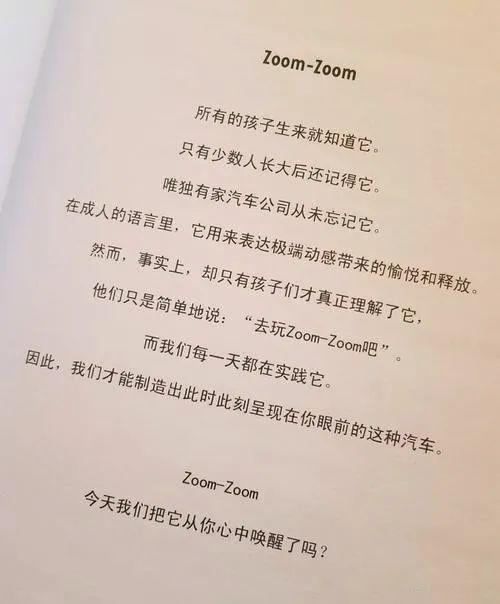 Zoom-Zoom
所有的孩子生来就知道它。
只有少数人长大后还记得它。
唯独有家汽车公司从未忘记它。
在成人的语言里，它用来表达极端动感带来的愉悦和释放。
然而，事实上，却只有孩子们才真正理解了它，
他们只是简单地说：“去玩Zoom-Zoom吧”。
而我们每一天都在实践它。
因此，我们才能制造出此时此刻呈现在你眼前的这种汽车。
Zoom-Zoom
今天我们把它从你心中唤醒了吗？